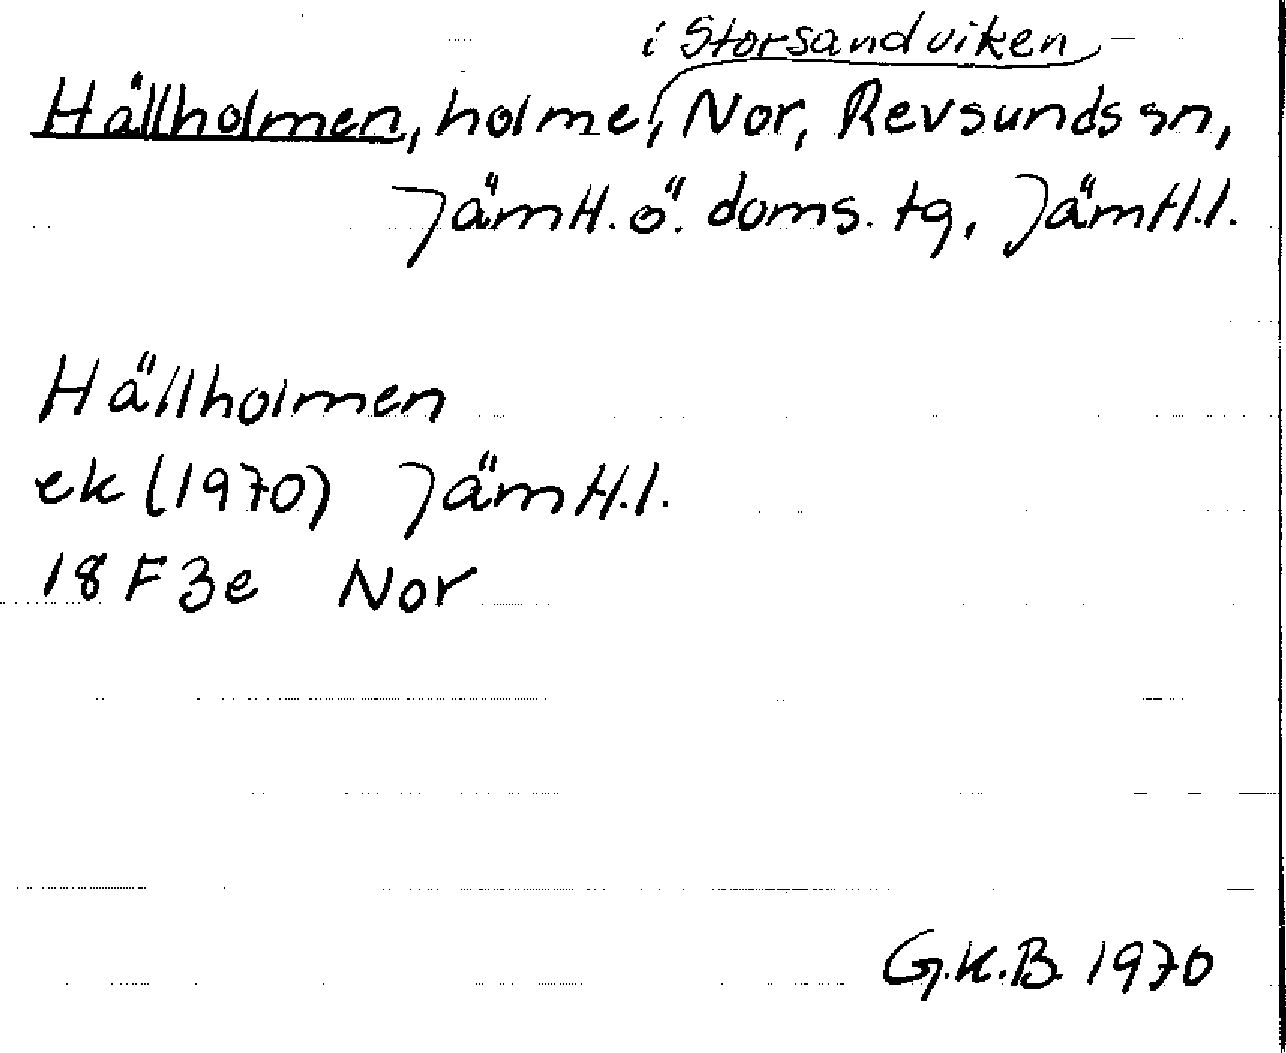 i Storsandviken
Hällholmen, holme, Nor, Revsunds sn,
Jämtl. ö. doms. tg, Jämtl.l.
Hällholmen
ek (1970) Jämtl.l.
18 F 3e Nor
G.K.B. 1970